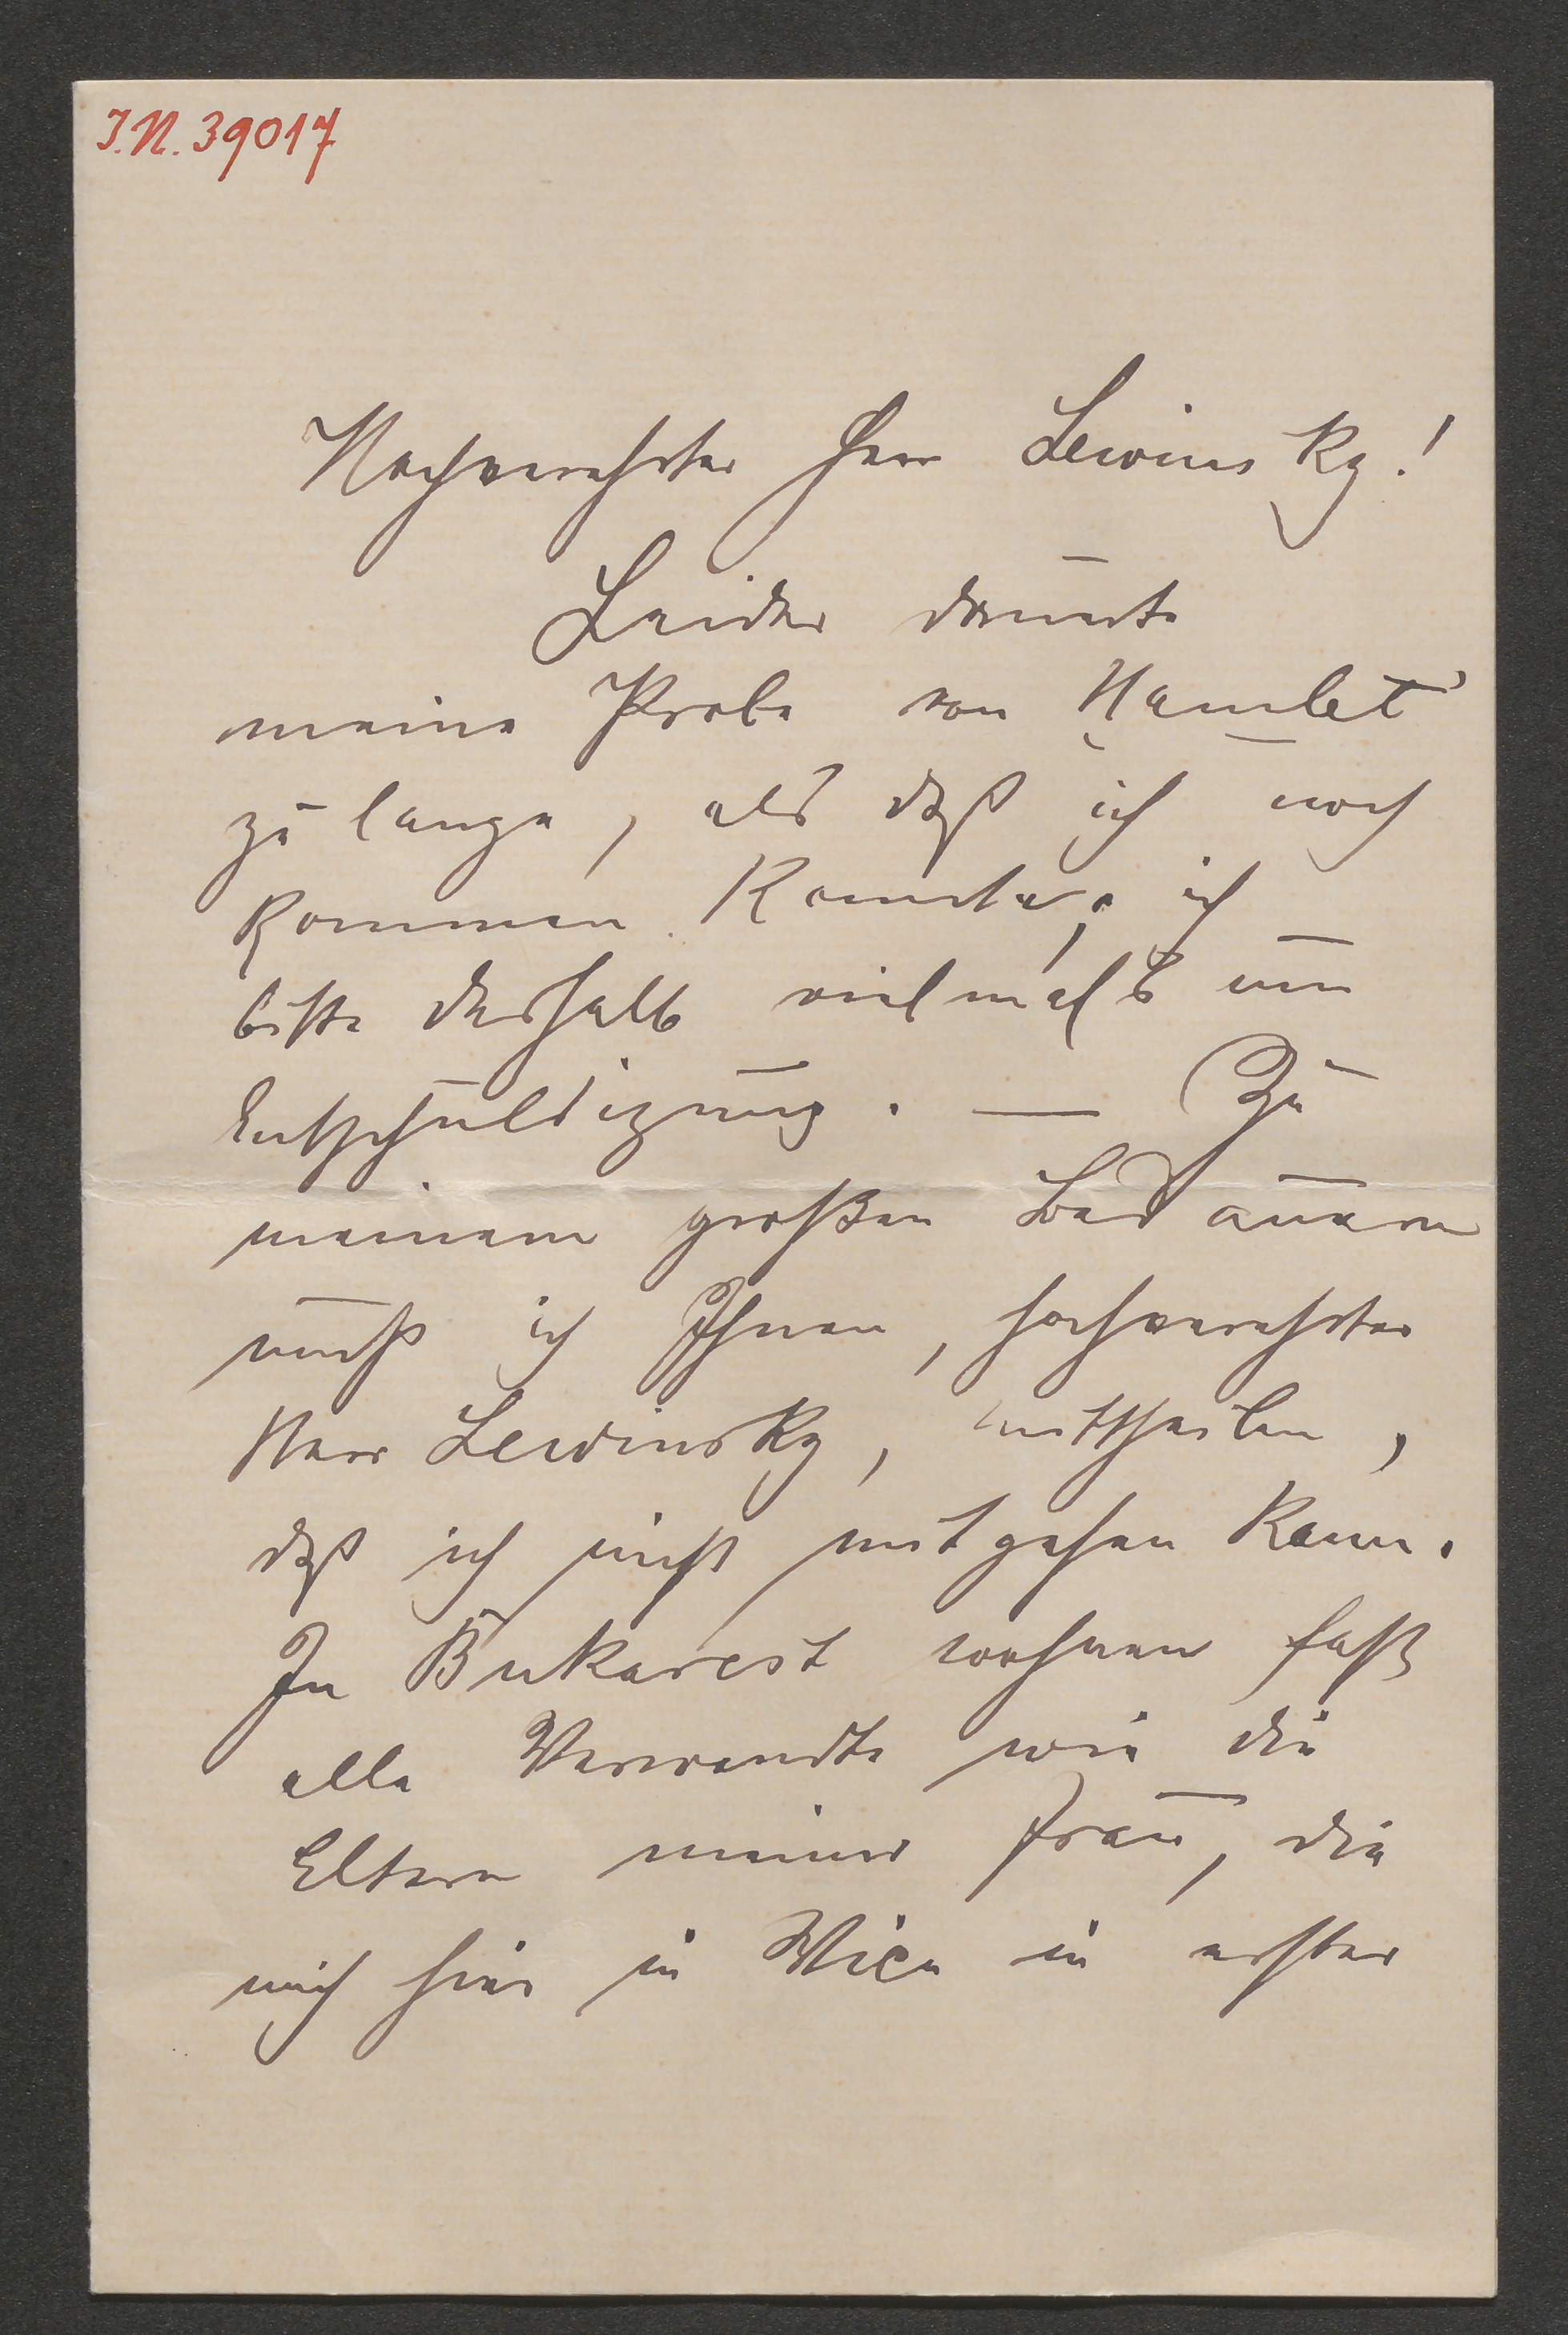 I.N. 39017
Hochverehrter Herr Lewinsky!
Leider dauerte
meine Probe von „Hamlet"
zu lange, als daß ich noch
kommen konnte; ich
bitte deshalb vielmals um
Entschuldigung. — Zu
meinem großen Bedauern
muß ich Ihnen, hochverehrter
Herr Lewinsky, mittheilen,
daß ich nicht mitgehen kann.
In Bukarest wohnen fast
alle Verwandte wie die
Eltern meiner Frau, die
mich hier in Wien in erster